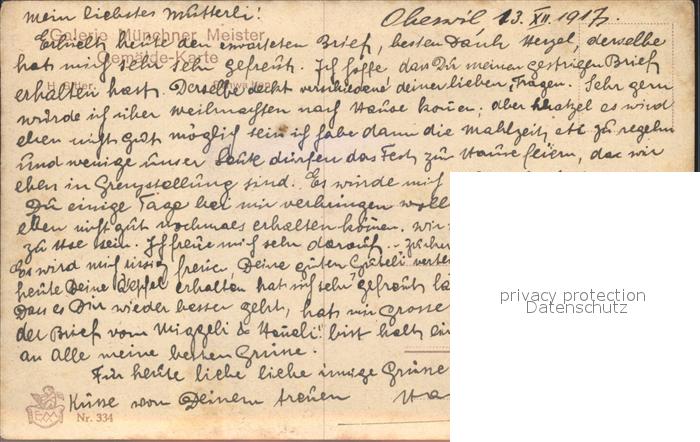 Mein liebstes Mutterli!
Oberwil 13. XII. 1917.
Galerie Münchner Meister
Gemälde-Karte
Erhielt heute den erwarteten Brief, besten Dank Herzel, derselbe
hat mich sehr sehr gefreut. Ich hoffe das Du meinen gestrigen Brief
erhalten hast. Derselbe deckt verschiedene deiner lieben Fragen. Sehr gern
würde ich über Weihnachten nach Hause komen, aber es wird
eben nicht gut möglich sein ich habe dann die Mahlzeit etc zu regeln
und wenige unser Leute dürfen das Fest zur Hause feiern, das wir
eben in Grenzstellung sind. Es würde mich
Du einige Tage bei mir verbringen
eben nicht gut nochmals erhalten können. wir
zu Hse sein. Ich freue mich sehr darauf
Es wird mich riesig freuen, Deine guten Guteli
heute Deine Aepfel erhalten hat mich sehr gefreut
Das es Dir wieder besser geht, hat mir Grosse
der Brief vom Miggeli & Hansli! bist halt
an Alle meine besten Grüsse.
Für heute liebe liebe innige Grüsse
Küsse von Deinem treuen
Nr. 334
privacy protection
Datenschutz